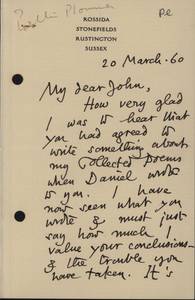 P.C
ROSSIDA
STONEFIELDS
RUSTINGTON
SUSSEX
20 March. 60
My dear John,
How very glad
I was to hear that
you had agreed to
write something about
my Collected Poems
when Daniel wrote
to you. I have
now seen what you
wrote & must just
say how much I
value your conclusions
& the trouble you
have taken. It's